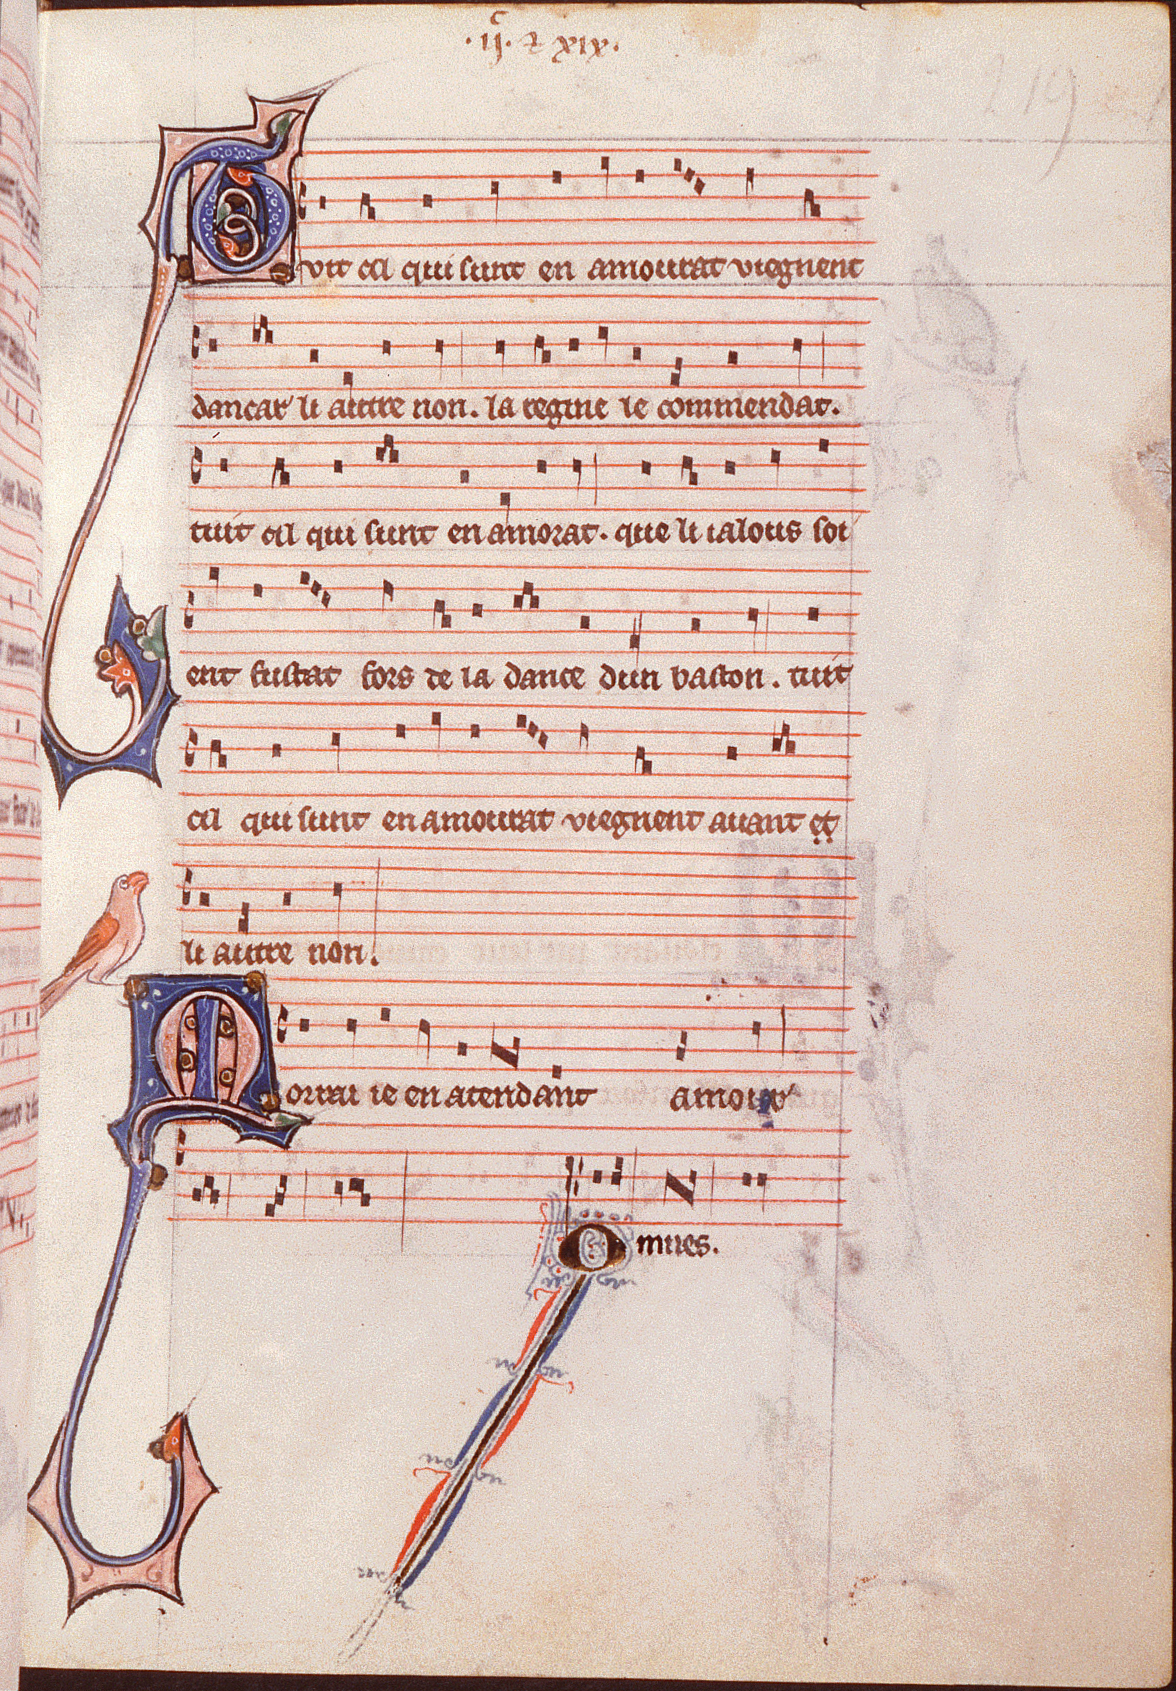 ·ijc· ⁊ xix·
219
Tuit cil qui sunt en amourat viegnent
dancar li autre non. la regine le commendat.
tuit cil qui sunt en amorat. que li ialous soi
ent fustat fors de la dance dun baston. tuit
cil qui sunt en amourat viegnent auant et
li autre non.
Morrai ie en atendant amour
Omnes.